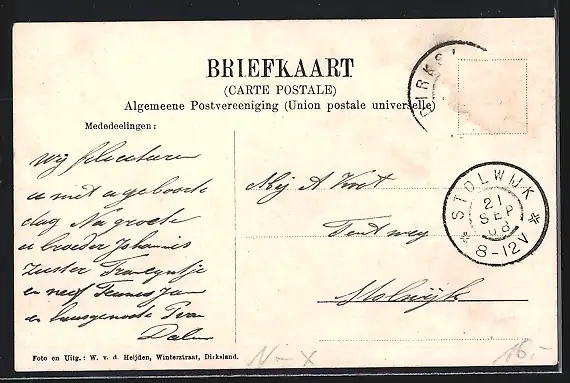 BRIEFKAART
(CARTE POSTALE)
Algemeene Postvereeniging (Union postale universelle)
DIRKS
Mededeelingen:
Wij feliciteeren
u met u geboorte
dag Na groete
u broeder Johannis
zuster
en neef Teunis Jan
en huisgenoote
Mej A
STOLWIJK
21
SEP
08
8-12V
Stolwijk
Foto en Uitg.: W. v. d. Heijden, Winterstraat, Dirksland.
N-X
16,-